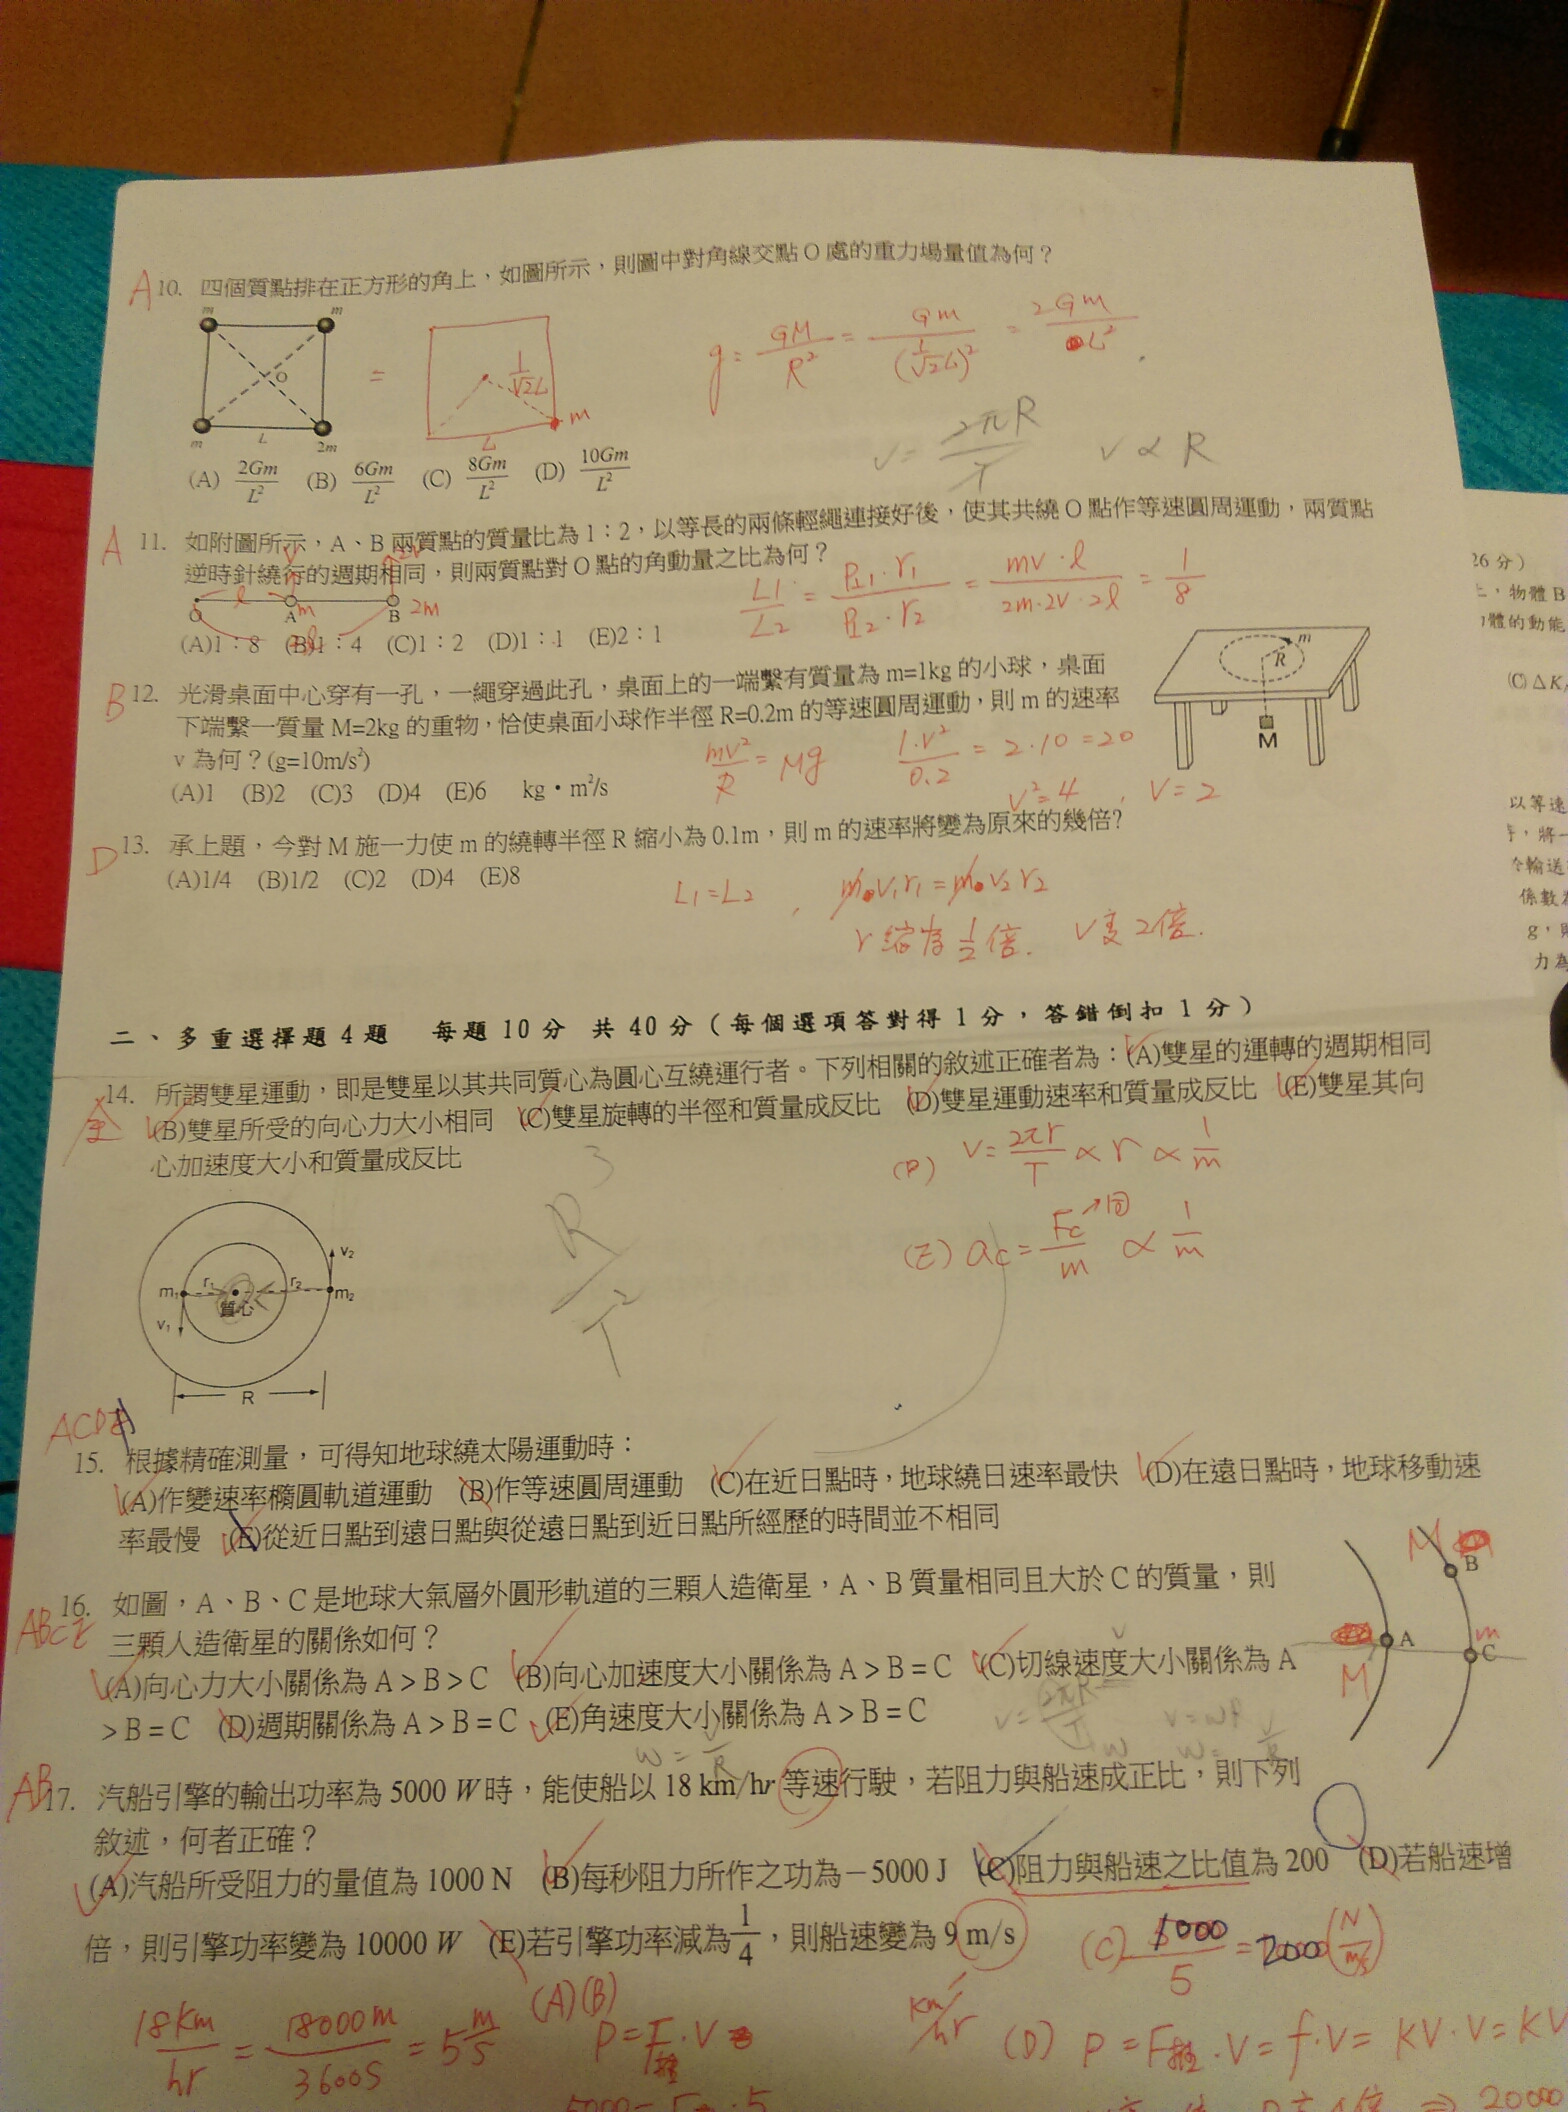 A 10. 四個質點排在正方形的角上，如圖所示，則圖中對角線交點 O 處的重力場量值為何？
m m
O
m L 2m
=
1/√2L
m
L
g = GM/R² = Gm/(1/√2 L)² = 2Gm/L²
v = 2πR/T v ∝ R
(A) 2Gm/L² (B) 6Gm/L² (C) 8Gm/L² (D) 10Gm/L²
A 11. 如附圖所示，A、B 兩質點的質量比為 1：2，以等長的兩條輕繩連接好後，使其共繞 O 點作等速圓周運動，兩質點
逆時針繞行的週期相同，則兩質點對 O 點的角動量之比為何？
O l A m B 2m
L1/L2 = P⊥1·r1/P⊥2·r2 = mv·l/2m·2v·2l = 1/8
(A)1：8 (B)1：4 (C)1：2 (D)1：1 (E)2：1
B 12. 光滑桌面中心穿有一孔，一繩穿過此孔，桌面上的一端繫有質量為 m=1kg 的小球，桌面
下端繫一質量 M=2kg 的重物，恰使桌面小球作半徑 R=0.2m 的等速圓周運動，則 m 的速率
v 為何？(g=10m/s²)
(A)1 (B)2 (C)3 (D)4 (E)6 kg·m²/s
m
R
M
mv²/R = Mg 1·v²/0.2 = 2·10 = 20
v²=4 , v=2
D 13. 承上題，今對 M 施一力使 m 的繞轉半徑 R 縮小為 0.1m，則 m 的速率將變為原來的幾倍?
(A)1/4 (B)1/2 (C)2 (D)4 (E)8
L1=L2 , m v1r1 = m v2r2
r 縮為 1/2 倍. v變2倍.
二、多重選擇題 4 題 每題 10 分 共 40 分（每個選項答對得 1 分，答錯倒扣 1 分）
全 14. 所謂雙星運動，即是雙星以其共同質心為圓心互繞運行者。下列相關的敘述正確者為：(A)雙星的運轉的週期相同
(B)雙星所受的向心力大小相同 (C)雙星旋轉的半徑和質量成反比 (D)雙星運動速率和質量成反比 (E)雙星其向
心加速度大小和質量成反比
(D) v = 2πr/T ∝ r ∝ 1/m
(E) ac = Fc/m ∝ 1/m
→同
R³/T²
m₁ r₁ r₂ m₂
質心
v₁ v₂
R
ACDE
15. 根據精確測量，可得知地球繞太陽運動時：
(A)作變速率橢圓軌道運動 (B)作等速圓周運動 (C)在近日點時，地球繞日速率最快 (D)在遠日點時，地球移動速
率最慢 (E)從近日點到遠日點與從遠日點到近日點所經歷的時間並不相同
ABCE 16. 如圖，A、B、C 是地球大氣層外圓形軌道的三顆人造衛星，A、B 質量相同且大於 C 的質量，則
三顆人造衛星的關係如何？
(A)向心力大小關係為 A > B > C (B)向心加速度大小關係為 A > B = C (C)切線速度大小關係為 A
> B = C (D)週期關係為 A > B = C (E)角速度大小關係為 A > B = C
M B
A
M
m
C
v = 2πR/T v = wR
w = v/R w = v/R
AB 17. 汽船引擎的輸出功率為 5000 W 時，能使船以 18 km/hr 等速行駛，若阻力與船速成正比，則下列
敘述，何者正確？
(A)汽船所受阻力的量值為 1000 N (B)每秒阻力所作之功為－5000 J (C)阻力與船速之比值為 200 (D)若船速增
倍，則引擎功率變為 10000 W (E)若引擎功率減為 1/4，則船速變為 9 m/s
(C) 1000/5 = 200 (N/m/s)
km/hr
18km/hr = 18000m/3600s = 5 m/s
(A)(B)
P = F推·V
(D) P = F推·V = f·V = KV·V = KV
26 分）
上，物體 B
體的動能
(C) ΔK
以等速
將一
輸送
係數為
g，則
力為